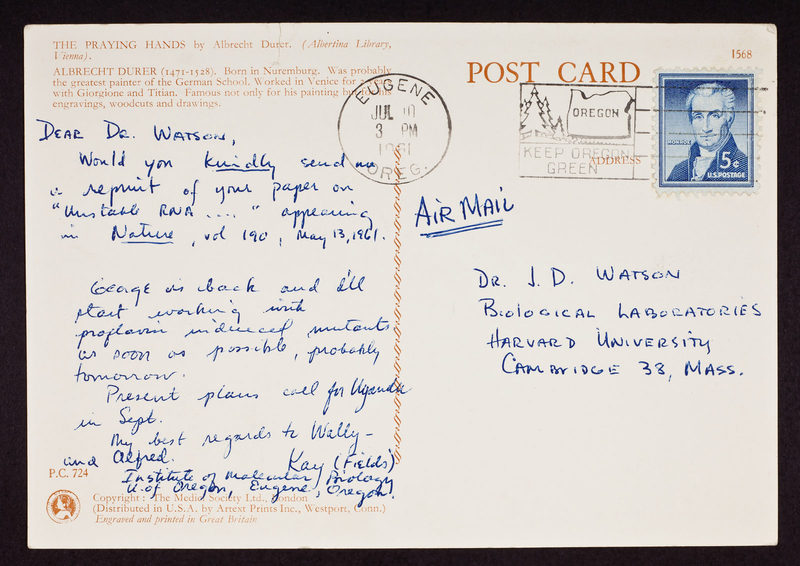 THE PRAYING HANDS by Albrecht Durer. (Albertina Library,
Vienna).
ALBRECHT DURER (1471-1528). Born in Nuremburg. Was probably
the greatest painter of the German School. Worked in Venice for
with Giorgione and Titian. Famous not only for his painting but
engravings, woodcuts and drawings.
POST CARD
1568
EUGENE
JUL 10
3 PM
1961
OREG.
OREGON
KEEP OREGON
GREEN
ADDRESS
MONROE
5¢
U.S. POSTAGE
DEAR DR. WATSON,
Would you kindly send me
a reprint of your paper on
"Unstable RNA ...." appearing
in Nature, vol 190, May 13, 1961.
George is back and I'll
start working with
proflavin induced mutants
as soon as possible, probably
tomorrow.
Present plans call for Uganda
in Sept.
My best regards to Wally -
and Alfred.
Kay (Fields)
Institute of Molecular Biology
U. of Oregon, Eugene, Oregon.
AIR MAIL
DR. J. D. WATSON
BIOLOGICAL LABORATORIES
HARVARD UNIVERSITY
CAMBRIDGE 38, MASS.
P.C. 724
Copyright: The Medici Society Ltd., London
(Distributed in U.S.A. by Artext Prints Inc., Westport, Conn.)
Engraved and printed in Great Britain